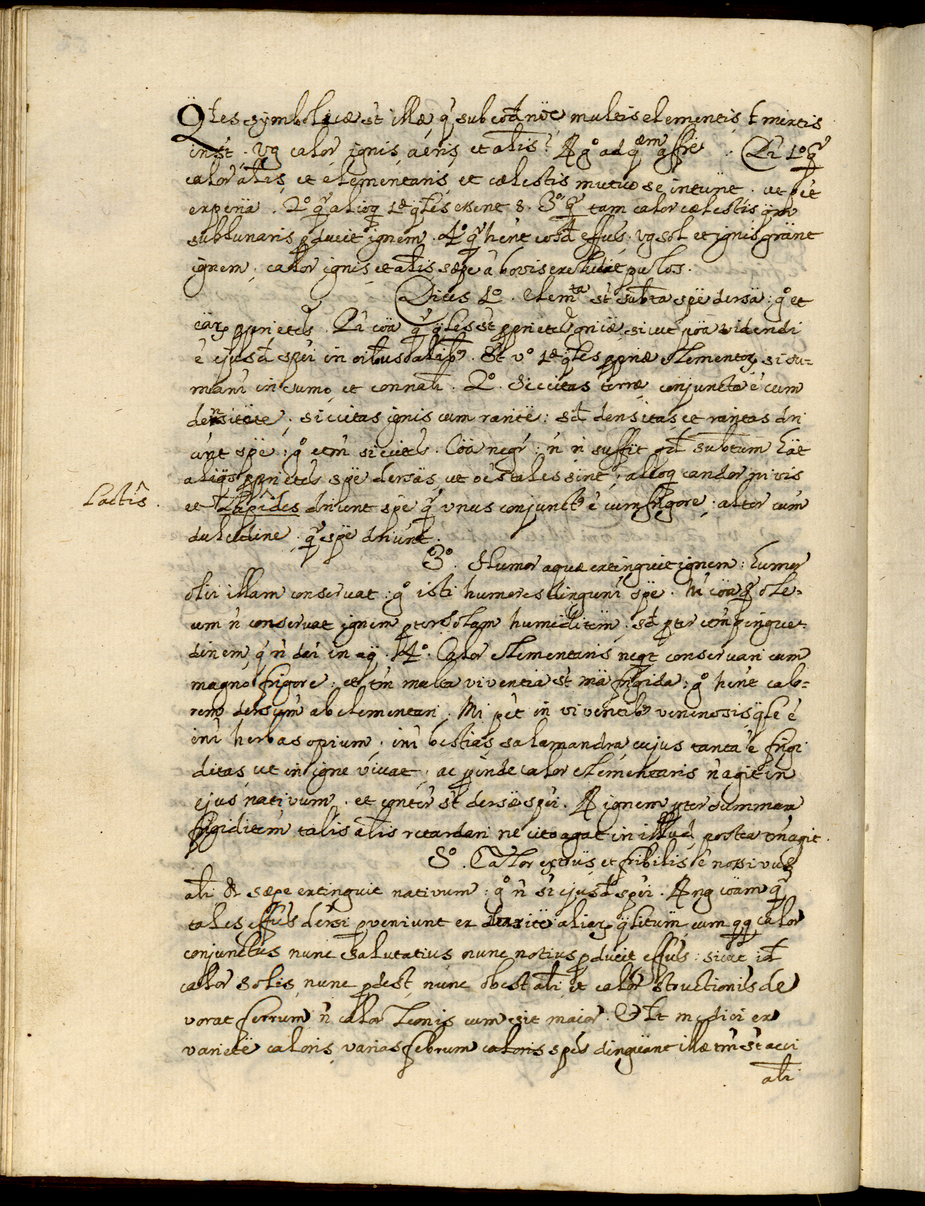 Qtes symbolicæ st illæ q subeōd nōe multis elementis t mixtis
inst. Vg calor ignis, aeris, et alis? R gº ad qm affre. Di 1º q
calor alis, et elementaris et cælestis mutuo se intunt. ut pt
experia. 2º q alioq 1æ qtes essent 8. 3º q tam calor cælestis qm
sublunaris pducit ignem. 4º q hent eosd effus: vg sol et ignis grānt
ignem. calor ignis et alis sæpe ab ovis excludit pullos.
Dices 1º. elemta st subta spē dersa: gº et
ear pprietes. Di cōa q qtes st pprietes gnicæ, sicut pōa videndi
ē ejusd spēi in oibus alibus. St vº 1æ qtes ppriæ elementor, si su-
mant in sumo, et connatli. 2º. Siccitas terræ conjuncta ē cum
densitate, siccitas ignis cum raritē: sd densitas, et raritas dri
ānt spē: gº etm siccites. Cōa negr: n n suffit qd subtum hāt
aliqs pprietes spē dersas, ut oes tales sint: alioq candor nivis
et Lapides driunt spē q unus conjunctus ē cum frigore: alter cum
Lactis.
dulcedine. q spē driunt.
3º. Humor aquæ extinguit ignem: humor
olei illam conservat: gº isti humores dinguni spē. Ni cōa q ole-
um n conservat ignem pter solam humiditem. sd pter etm pingue-
dinem, q n dat in aq. 4º. Calor elementaris neqt conservari cum
magno frigore: et tm multa viventia st mā frigida: gº hent calo-
rem dersum ab elementari. Mi pēt in viventibs venenosis qle ē
int herbas opium. int bestias salamandra cujus tanta ē frigi
ditas ut in igne vivat, ac pinde calor elementaris n agit in
ejus nativum. et conter st dersæ spēi. R ignem pter summam
frigiditem talis alis retardari ne cito agat in illud, postea tm agit.
5º. Calor extrus, et febrilis ē noxivus
ali & sæpe extinguit nativum: gº n st ejusd spēi. R ng cōam q
tales effus dersi pveniunt ex dersitē aliar qlitum, cum qq calor
conjunctus nunc salutatius nunc notius pducit effus: sicut id
calor solis, nunc pdest nunc obest ali, et calor structionis de
vorat ferrum n calor Leonis cum sit maior. Et medici ex
varietē caloris, varias februm caloris spēs dingūant illæ tm st acci
ali